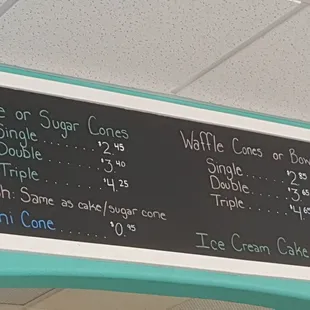 e or Sugar Cones
Single ........ $2.45
Double ........ $3.40
Triple ........ $4.25
sh: Same as cake/sugar cone
ni Cone ........ $0.95
Waffle Cones or Bow
Single ...... $2.85
Double ...... $3.85
Triple ...... $4.65
Ice Cream Cake